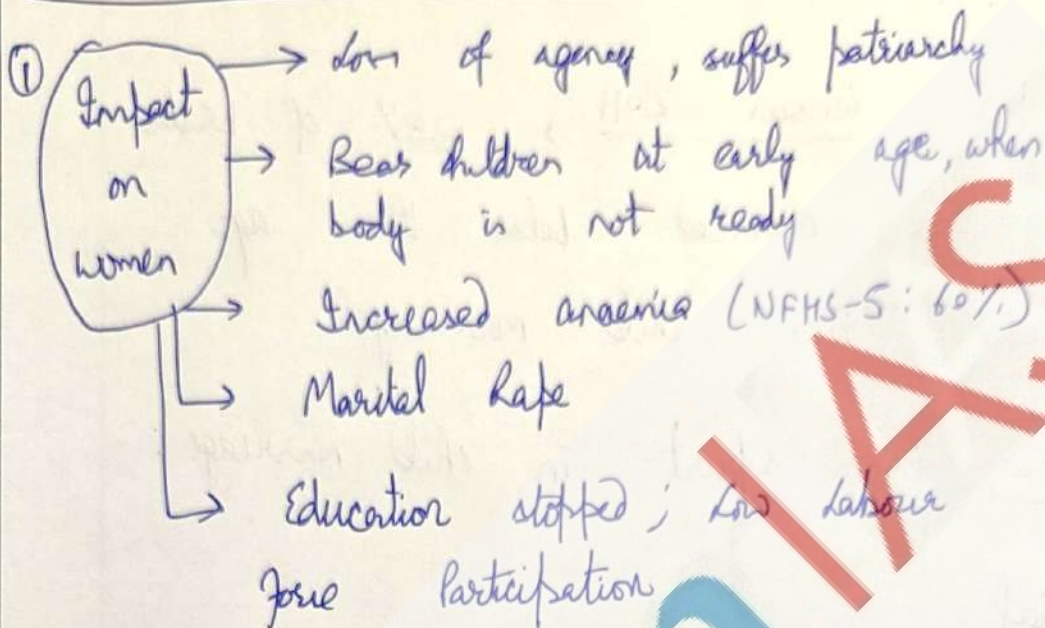 ① Impact on women
→ Loss of agency, suffer patriarchy
→ Bear children at early age, when
body is not ready
→ Increased anaemia (NFHS-5: 60%)
→ Marital Rape
→ Education stopped; Low Labour
Force Participation
IAS